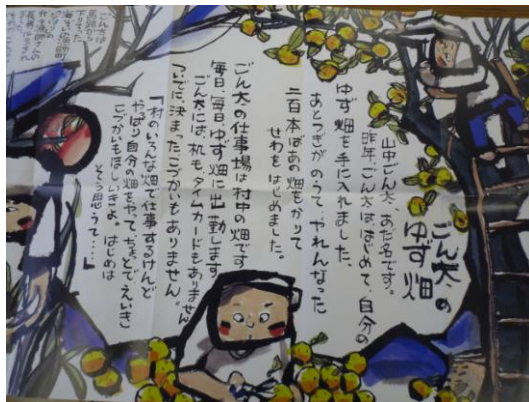 ごん太の
ゆず畑
山中ごん太、あだ名です。
昨年、ごん太は、はじめて、自分の
ゆず畑を手に入れました。
あとつぎがのうて、やれんなった
二百本ばあの畑をかりて
せわをはじめました。
ごん太の仕事場は村中の畑です
毎日、毎日ゆず畑に出勤します。
ごん太には、机も、タイムカードもありません
ついでに、決まったこづかいもありません。
「村のいろんな畑で仕事するけんど
やっぱり自分の畑をやって、ちょっとで、えいき
こづかいもほしいきよ。はじめは
そう思うて……」
ごん太は
馬路から